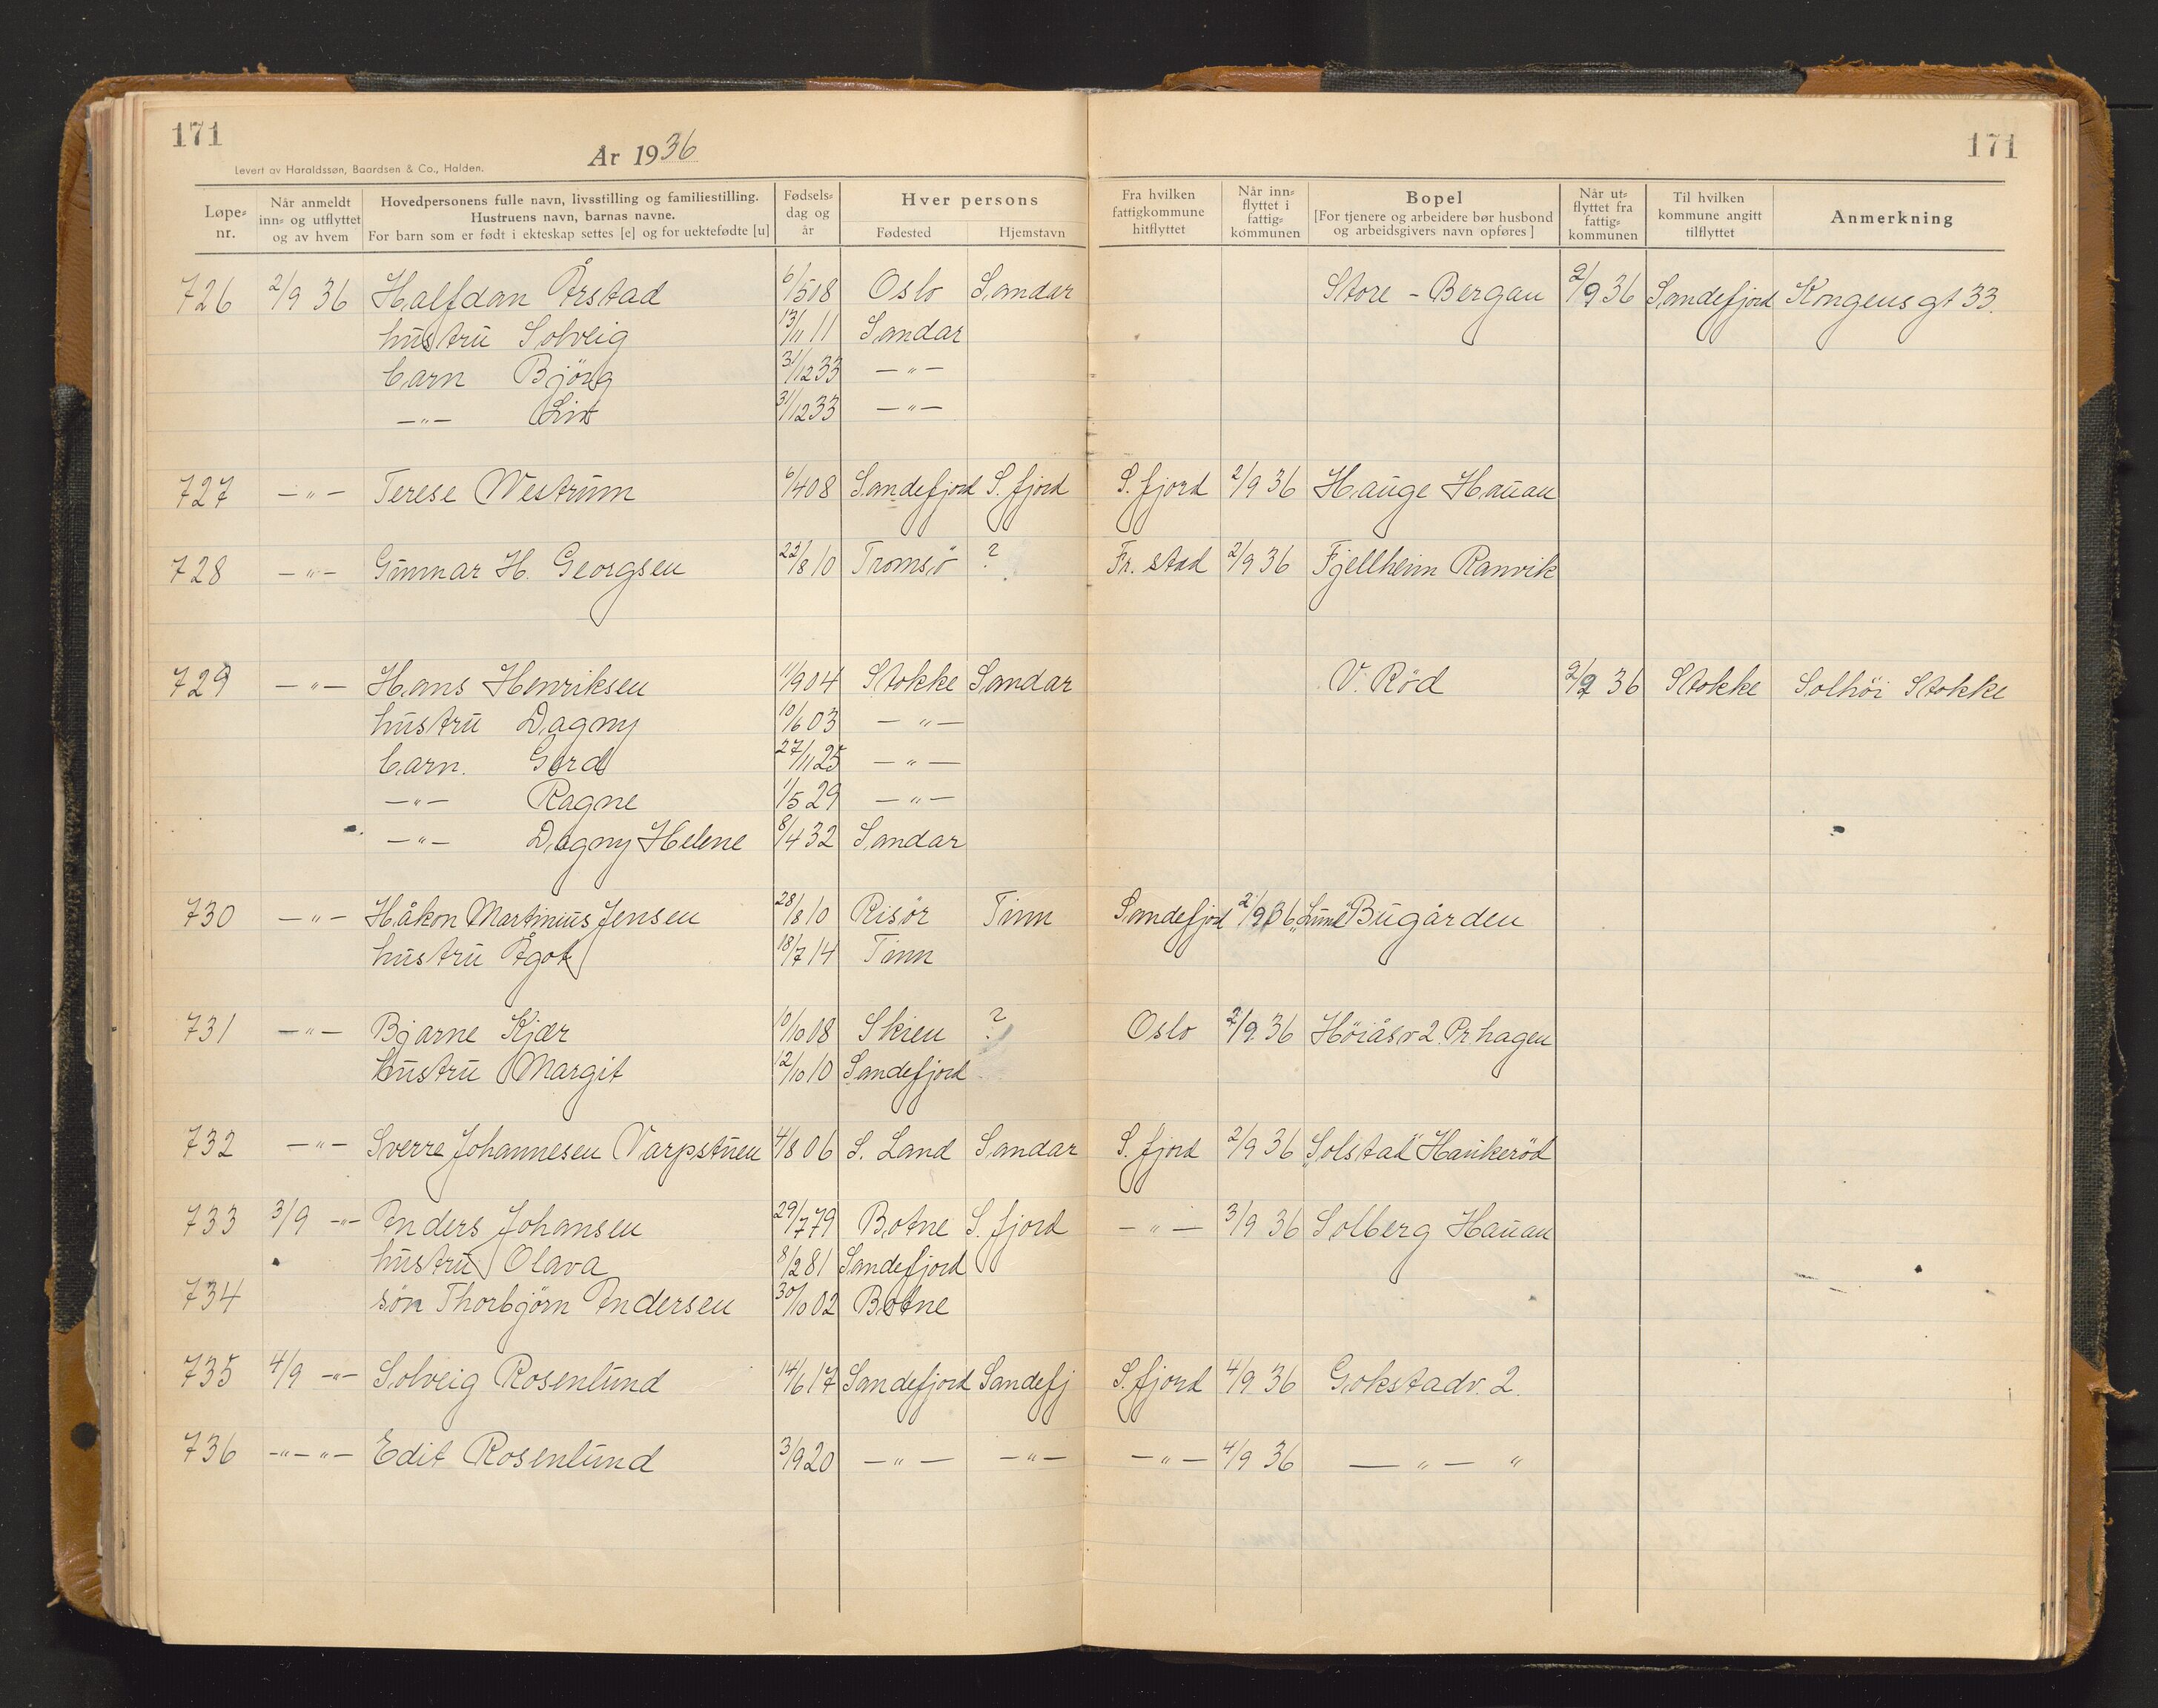 171
171
År 1936
Levert av Haraldssøn, Baardsen & Co., Halden.
Løpe-nr. | Når anmeldt inn- og utflyttet og av hvem | Hovedpersonens fulle navn, livsstilling og familiestilling. Hustruens navn, barnas navne. For barn som er født i ekteskap settes [e] og for uektefødte [u] | Fødselsdag og år | Hver persons Fødested | Hjemstavn | Fra hvilken fattigkommune hitflyttet | Når innflyttet i fattigkommunen | Bopel [For tjenere og arbeidere bør husbond og arbeidsgivers navn opføres] | Når utflyttet fra fattigkommunen | Til hvilken kommune angitt tilflyttet | Anmerkning
726 2/9 36 Halfdan Årstad 6/5 08 Oslo Sandar Store - Bergan 2/9 36 Sandefjord Kongensgt 33.
hustru Solveig 13/11 11 Sandar
barn Björg 31/12 33 -"-
-"- Liv 31/12 33 -"-
727 -"- Terese Westrum 6/4 08 Sandefjord S. fjord S. fjord 2/9 36 Hauge Hauan
728 -"- Gunnar H. Georgsen 22/8 10 Tromsö ? Fr. stad 2/9 36 Fjellheim Ranvik
729 -"- Hans Henriksen 11/9 04 Stokke Sandar V. Rød 2/9 36 Stokke Solhöi Stokke
hustru Dagny 10/6 03 -"-
barn. Gerd 27/11 25 -"-
-"- Ragne 1/5 29 -"-
-"- Dagny Helene 8/4 32 Sandar
730 -"- Håkon Martinius Jensen 28/8 10 Risör Tinn Sandefjord 2/9 36 "Lund" Bugården
hustru Ågot 18/7 14 Tinn
731 -"- Bjarne Kjær 10/10 08 Skien ? Oslo 2/9 36 Höiåsv 2. Pr. hagen
hustru Margit 12/10 10 Sandefjord
732 -"- Sverre Johannesen Varpstuen 4/8 06 S. Land Sandar S. fjord 2/9 36 "Solstad" Haukeröd
733 3/9 -"- Anders Johansen 29/7 79 Botne S. fjord -"- 3/9 36 Solberg Hauan
hustru Olava 8/2 81 Sandefjord
734 sön Thorbjörn Andersen 30/10 02 Botne
735 4/9 -"- Solveig Rosenlund 14/6 17 Sandefjord Sandefj S. fjord 4/9 36 Gokstadv. 2.
736 -"- "- Edit Rosenlund 3/9 20 -"- -"- -"- 4/9 36 -"- "